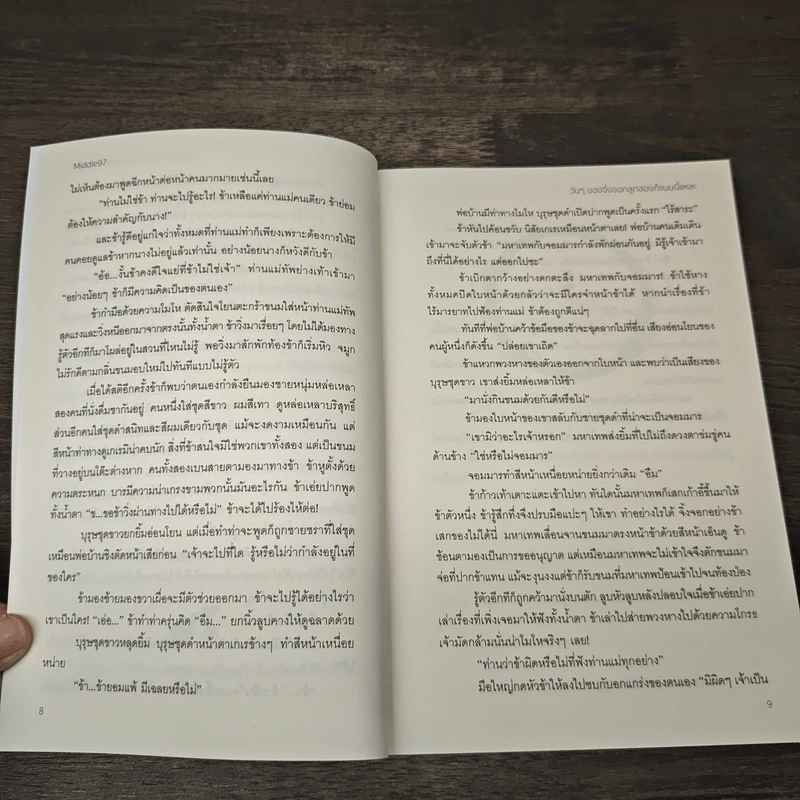 Middle97
ไม่เห็นต้องมาพูดฉีกหน้าต่อหน้าคนมากมายเช่นนี้เลย
"ท่านไม่ใช่ข้า ท่านจะไปรู้อะไร! ข้าเหลือแค่ท่านแม่คนเดียว ข้าย่อม
ต้องให้ความสำคัญกับนาง!"
และข้ารู้ดีอยู่แก่ใจว่าทั้งหมดที่ท่านแม่ทำก็เพียงเพราะต้องการให้มี
คนคอยดูแลข้าหากนางไม่อยู่แล้วเท่านั้น อย่างน้อยนางก็หวังดีกับข้า
"อ้อ...งั้นข้าคงดีใจแย่ที่ข้าไม่ใช่เจ้า" ท่านแม่ทัพย่างเท้าเข้ามา
"อย่างน้อยๆ ข้าก็มีความคิดเป็นของตนเอง"
ข้ากำมือด้วยความโมโห ตัดสินใจโยนตะกร้าขนมใส่หน้าท่านแม่ทัพ
สุดแรงและวิ่งหนีออกมาจากตรงนั้นทั้งน้ำตา ข้าวิ่งมาเรื่อยๆ โดยไม่ได้มองทาง
รู้ตัวอีกทีก็มาโผล่อยู่ในสวนที่ไหนไม่รู้ พอวิ่งมาสักพักท้องข้าก็เริ่มหิว จมูก
ไม่รักดีตามกลิ่นขนมอบใหม่ไปทันทีแบบไม่รู้ตัว
เมื่อได้สติอีกครั้งข้าก็พบว่าตนเองกำลังยืนมองชายหนุ่มหล่อเหลา
สองคนที่นั่งดื่มชากันอยู่ คนหนึ่งใส่ชุดสีขาว ผมสีเทา ดูหล่อเหลาบริสุทธิ์
ส่วนอีกคนใส่ชุดดำสนิทและสีผมเดียวกับชุด แม้จะงดงามเหมือนกัน แต่
สีหน้าท่าทางดูเกเรมิน่าคบนัก สิ่งที่ข้าสนใจมิใช่พวกเขาทั้งสอง แต่เป็นขนม
ที่วางอยู่บนโต๊ะต่างหาก คนทั้งสองเบนสายตามองมาทางข้า ข้าหูตั้งด้วย
ความตระหนก บารมีความน่าเกรงขามพวกนั้นมันอะไรกัน ข้าเอ่ยปากพูด
ทั้งน้ำตา "ข...ขอข้าวิ่งผ่านทางไปได้หรือไม่" ข้าจะได้ไปร้องไห้ต่อ!
บุรุษชุดขาวยกยิ้มอ่อนโยน แต่เมื่อทำท่าจะพูดก็ถูกชายชราที่ใส่ชุด
เหมือนพ่อบ้านชิงตัดหน้าเสียก่อน "เจ้าจะไปที่ใด รู้หรือไม่ว่ากำลังอยู่ในที่
ของใคร"
ข้ามองซ้ายมองขวาเผื่อจะมีตัวช่วยออกมา ข้าจะไปรู้ได้อย่างไรว่า
เขาเป็นใคร! "เอ่อ..." ข้าทำท่าครุ่นคิด "อืม..." ยกนิ้วลูบคางให้ดูฉลาดด้วย
บุรุษชุดขาวหลุดยิ้ม บุรุษชุดดำหน้าตาเกเรข้างๆ ทำสีหน้าเหนื่อย
หน่าย
"ข้า...ข้ายอมแพ้ มีเฉลยหรือไม่"
8
วันๆ ของจิ้งจอกลูกสองก็แบบนี้แหละ
พ่อบ้านมีท่าทางโมโห บุรุษชุดดำเปิดปากพูดเป็นครั้งแรก "ไร้สาระ"
ข้าหันไปค้อนขวับ นิสัยเกเรเหมือนหน้าตาเลย! พ่อบ้านคนเดิมเดิน
เข้ามาจะจับตัวข้า "มหาเทพกับจอมมารกำลังพักผ่อนกันอยู่ มิรู้เจ้าเข้ามา
ถึงที่นี่ได้อย่างไร แต่ออกไปซะ"
ข้าเบิกตากว้างอย่างตกตะลึง มหาเทพกับจอมมาร! ข้าใช้หาง
ทั้งหมดปิดใบหน้าด้วยกลัวว่าจะมีใครจำหน้าข้าได้ หากนำเรื่องที่ข้า
ไร้มารยาทไปฟ้องท่านแม่ ข้าต้องถูกตีแน่ๆ
ทันทีที่พ่อบ้านคว้าข้อมือของข้าจะฉุดลากไปที่อื่น เสียงอ่อนโยนของ
คนผู้หนึ่งก็ดังขึ้น "ปล่อยเขาเถิด"
ข้าแหวกพวงหางของตัวเองออกจากใบหน้า และพบว่าเป็นเสียงของ
บุรุษชุดขาว เขาส่งยิ้มหล่อเหลาให้ข้า
"มานั่งกินขนมด้วยกันดีหรือไม่"
ข้ามองใบหน้าของเขาสลับกับชายชุดดำที่น่าจะเป็นจอมมาร
"เขามิว่าอะไรเจ้าหรอก" มหาเทพส่งยิ้มที่ไปไม่ถึงดวงตาข่มขู่คน
ด้านข้าง "ใช่หรือไม่จอมมาร"
จอมมารทำสีหน้าเหนื่อยหน่ายยิ่งกว่าเดิม "อืม"
ข้าก้าวเท้าเตาะแตะเข้าไปหา ทันใดนั้นมหาเทพก็เสกเก้าอี้ขึ้นมาให้
ข้าตัวหนึ่ง ข้ารู้สึกทึ่งจึงปรบมือแปะๆ ให้เขา ทำอย่างไรได้ จิ้งจอกอย่างข้า
เสกของไม่ได้นี่ มหาเทพเลื่อนจานขนมมาตรงหน้าข้าด้วยสีหน้าเอ็นดู ข้า
ช้อนตามองเป็นการขออนุญาต แต่เหมือนมหาเทพจะไม่เข้าใจจึงตักขนมมา
จ่อที่ปากข้าแทน แม้จะงุนงงแต่ข้าก็รับขนมที่มหาเทพป้อนเข้าไปจนท้องป่อง
รู้ตัวอีกทีก็ถูกคว้ามานั่งบนตัก ลูบหัวลูบหลังปลอบใจเมื่อข้าเอ่ยปาก
เล่าเรื่องที่เพิ่งเจอมาให้ฟังทั้งน้ำตา ข้าเล่าไปส่ายพวงหางไปด้วยความโกรธ
เจ้ามัดกล้ามนั่นน่าโมโหจริงๆ เลย!
"ท่านว่าข้าผิดหรือไม่ที่ฟังท่านแม่ทุกอย่าง"
มือใหญ่กดหัวข้าให้ลงไปซบกับอกแกร่งของตนเอง "มิผิดๆ เจ้าเป็น
9